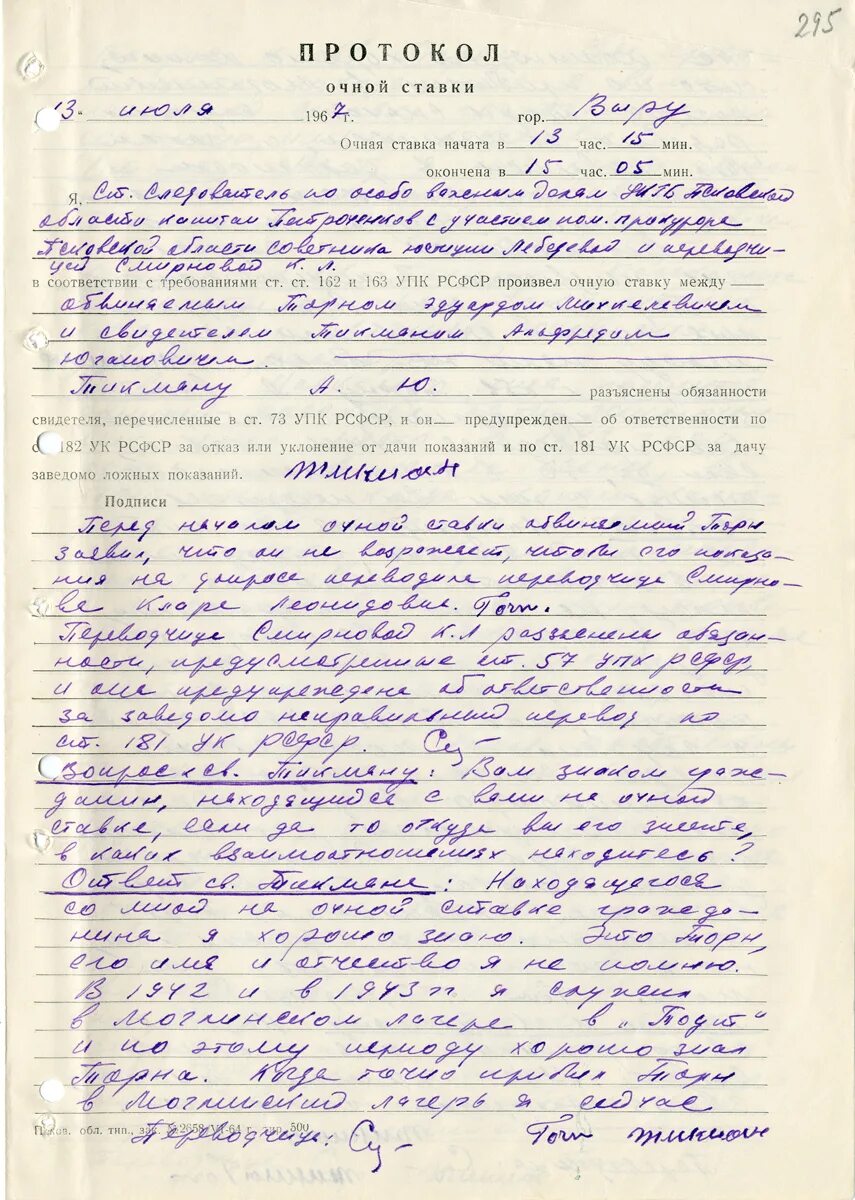 295
ПРОТОКОЛ
очной ставки
13 июля 1967 г. гор. Выру
Очная ставка начата в 13 час. 15 мин.
окончена в 15 час. 05 мин.
Я, ст. следователь по особо важным делам УКГБ Псковской
области капитан Петроченков с участием пом. прокурора
Псковской области советника юстиции Лебедевой и переводчи-
цей Смирновой К. Л.
в соответствии с требованиями ст. ст. 162 и 163 УПК РСФСР произвел очную ставку между
обвиняемым Торном Эдуардом Михкелевичем
и свидетелем Тикманим Альфредом
Югановичем.
Тикману А. Ю. разъяснены обязанности
свидетеля, перечисленные в ст. 73 УПК РСФСР, и он предупрежден об ответственности по
с 182 УК РСФСР за отказ или уклонение от дачи показаний и по ст. 181 УК РСФСР за дачу
заведомо ложных показаний.
Подписи
Перед началом очной ставки обвиняемый Торн
заявил, что он не возражает, чтобы его показа-
ния на допросе переводила переводчица Смирно-
ва Клара Леонидовна.
Переводчице Смирновой К.Л разъяснены обязан-
ности, предусмотренные ст. 57 УПК РСФСР,
и она предупреждена об ответственности
за заведомо неправильный перевод по
ст. 181 УК РСФСР.
Вопрос св. Тикману: Вам знаком граж-
данин, находящийся с вами на очной
ставке, если да то откуда вы его знаете,
в каких взаимоотношениях находитесь?
Ответ св. Тикмана: Находящегося
со мной на очной ставке гражда-
нина я хорошо знаю. Это Торн,
его имя и отчество я не помню.
В 1942 и в 1943 гг я служил
в Моглинском лагере в "Тодт"
и по этому периоду хорошо знал
Торна. Когда точно прибыл Торн
в Моглинский лагерь я сейчас
Псков. обл. тип., зак. №2658-VII-64 г. тир. 500
Переводчица: